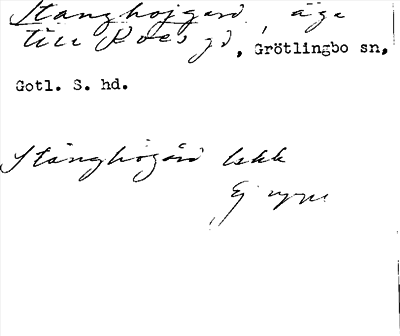 Stånghöjgård, äga
till Roes gd, Grötlingbo sn,
Gotl. S. hd.
Stånghögård Iskk
Ej uppt